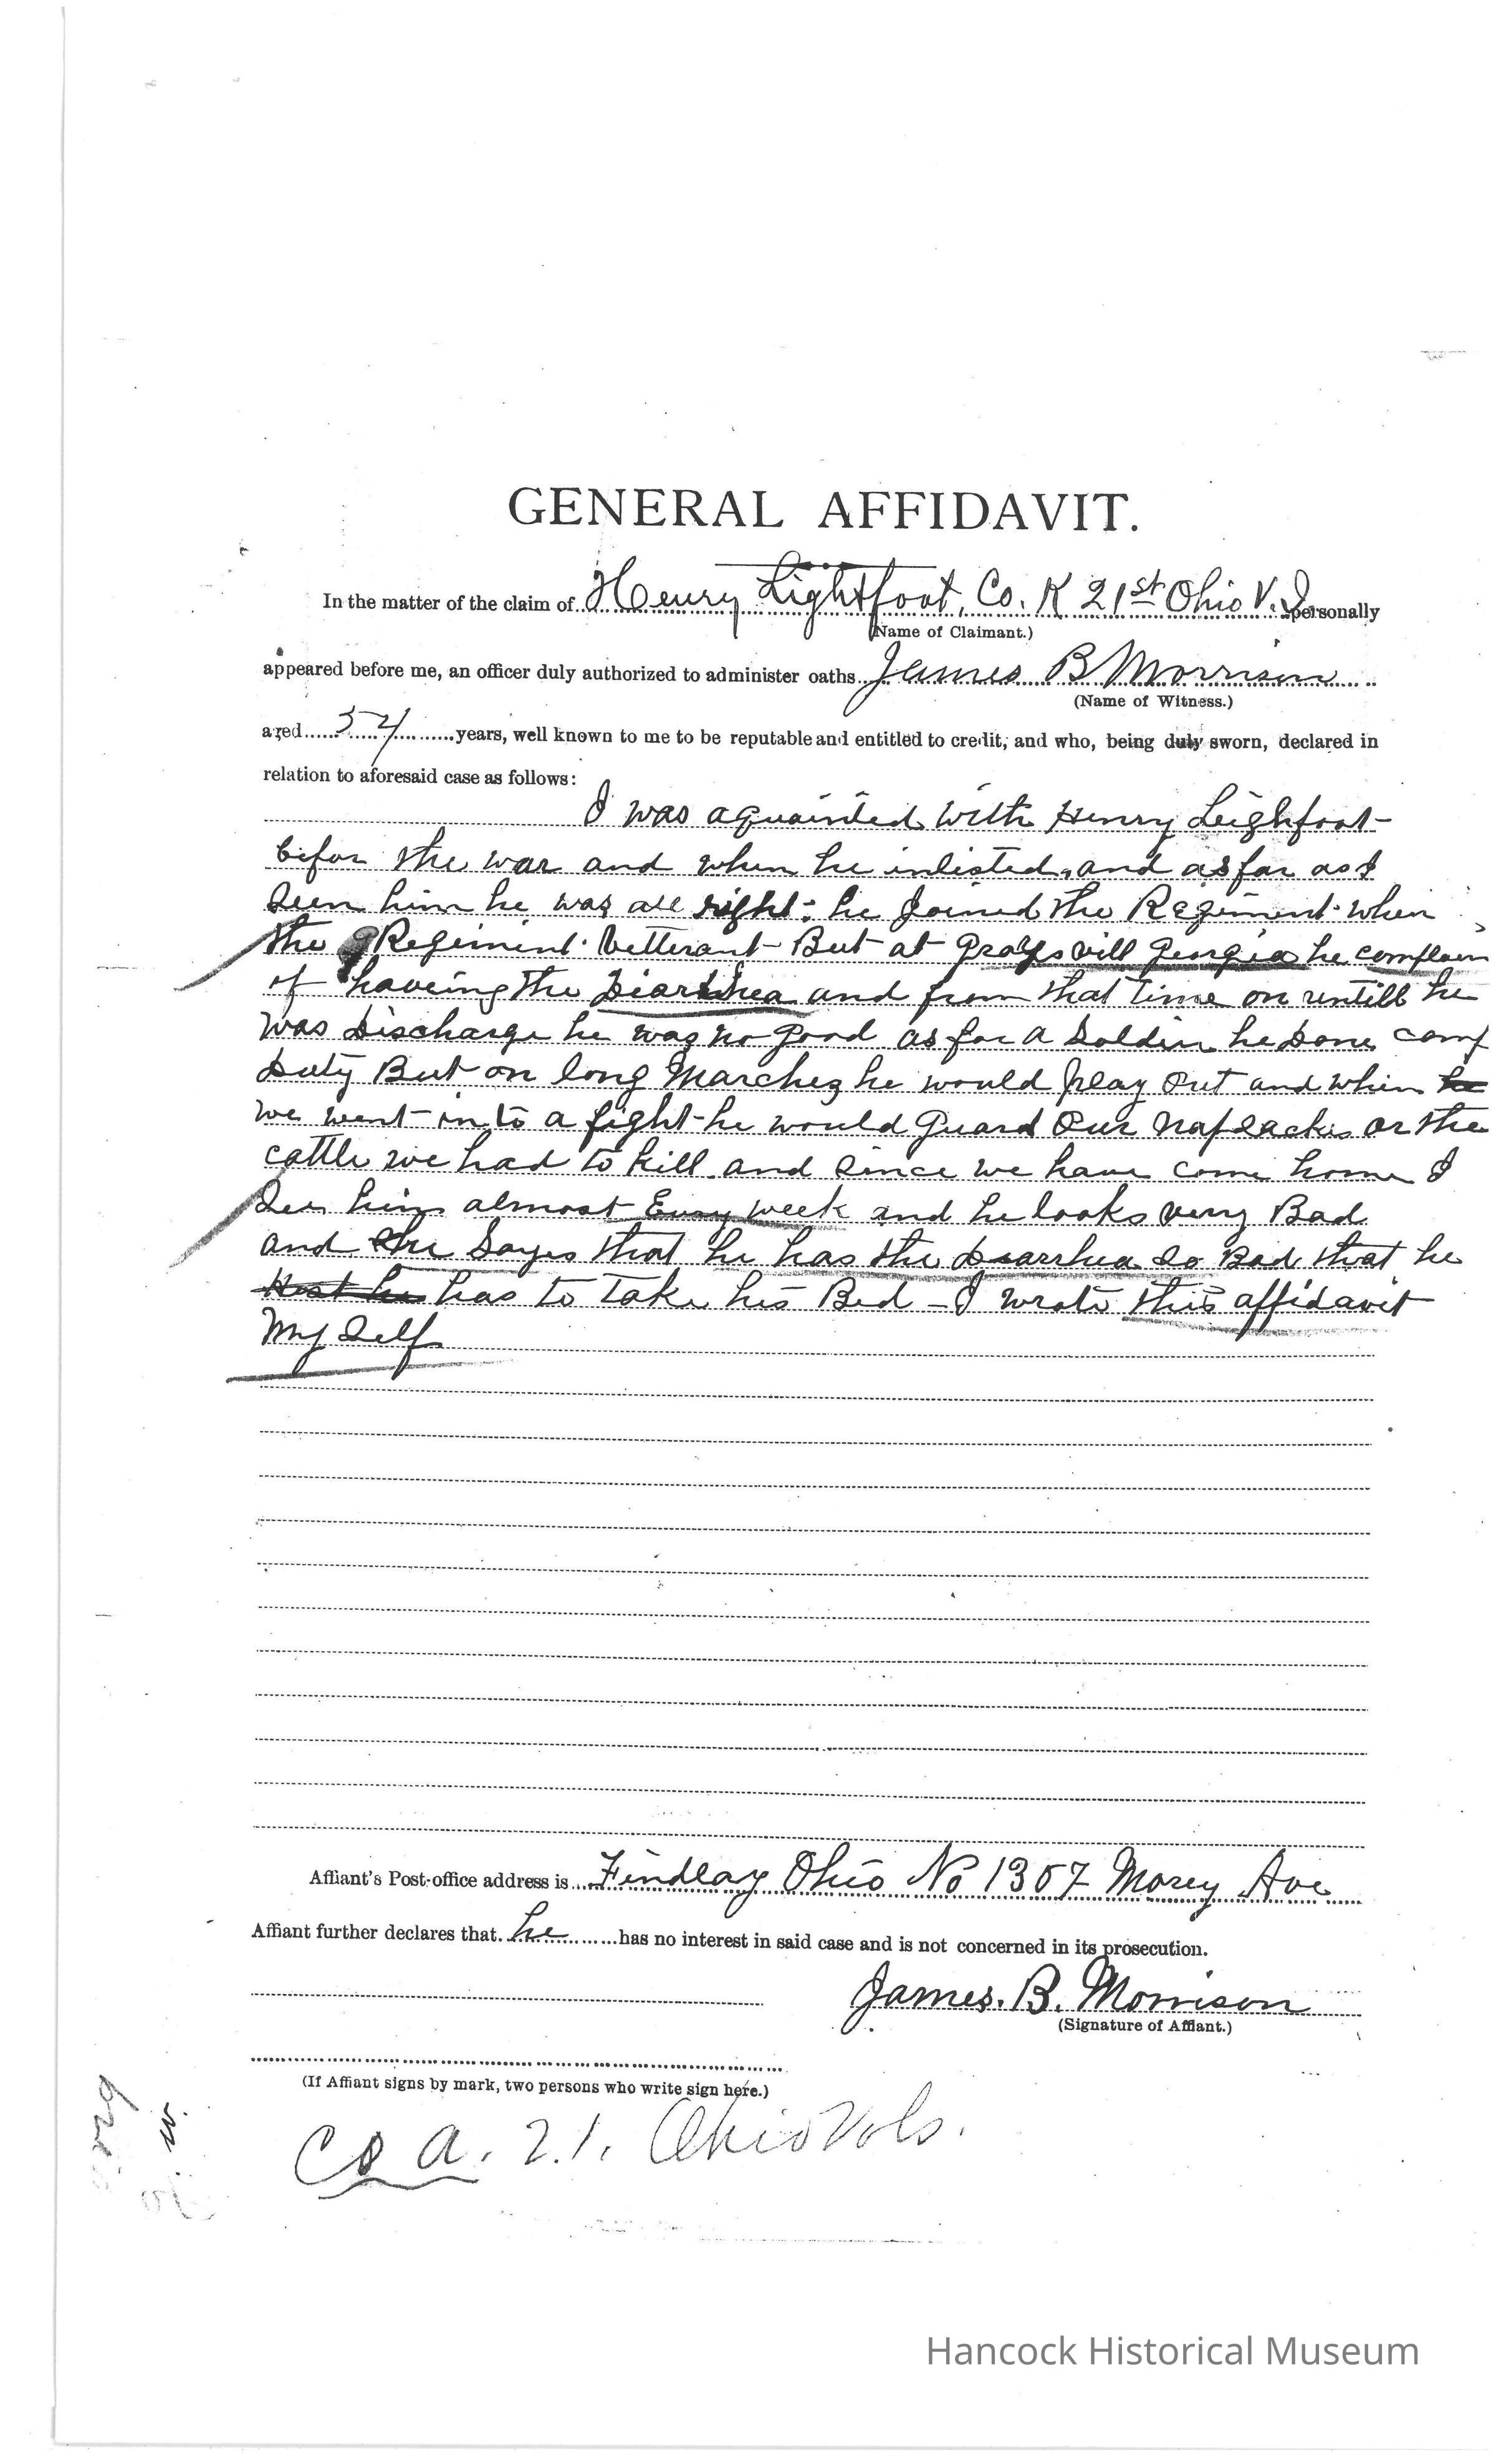 GENERAL AFFIDAVIT.
In the matter of the claim of Henry Lightfoot, Co. K 21st Ohio V. I. personally
(Name of Claimant.)
appeared before me, an officer duly authorized to administer oaths James B Morrison
(Name of Witness.)
aged 54 years, well known to me to be reputable and entitled to credit, and who, being duly sworn, declared in
relation to aforesaid case as follows:
I was aquainted with Henry Leighfoot
befor the war and when he inlisted, and as far as I
Seen him he was all right: he Joined the Regiment when
the Regiment vetterant But at Graysvill Georgia he complain
of haveing the Diarrhea and from that time on untill he
was Discharge he was no good as for a Soldier he Done camp
Duty But on long Marches he would play out and when he
we went in to a fight he would Guard our napsacks or the
cattle we had to kill and Since we have come home I
See him almost Every week and he looks very Bad
and he Sayes that he has the Diarrhea so Bad that he
that he has to take his Bed - I wrote this affidavit
My Self
Affiant's Post-office address is Findlay Ohio No 1307 Morey Ave
Affiant further declares that he has no interest in said case and is not concerned in its prosecution.
James. B. Morrison
(Signature of Affiant.)
(If Affiant signs by mark, two persons who write sign here.)
Co A. 21. Ohio Vols.
Hancock Historical Museum